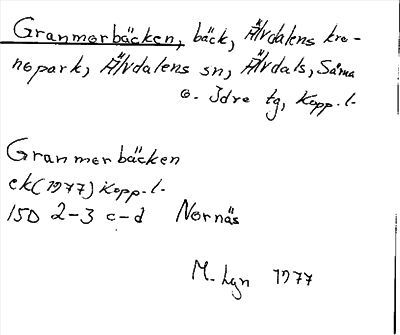 Granmorbäcken, bäck, Älvdalens kro-
nopark, Älvdalens sn, Älvdals, Särna
o. Idre tg, Kopp. l.
Granmorbäcken
ek (1977) Kopp. l.
15D 2-3 c-d Nornäs
M. Lgn 1977